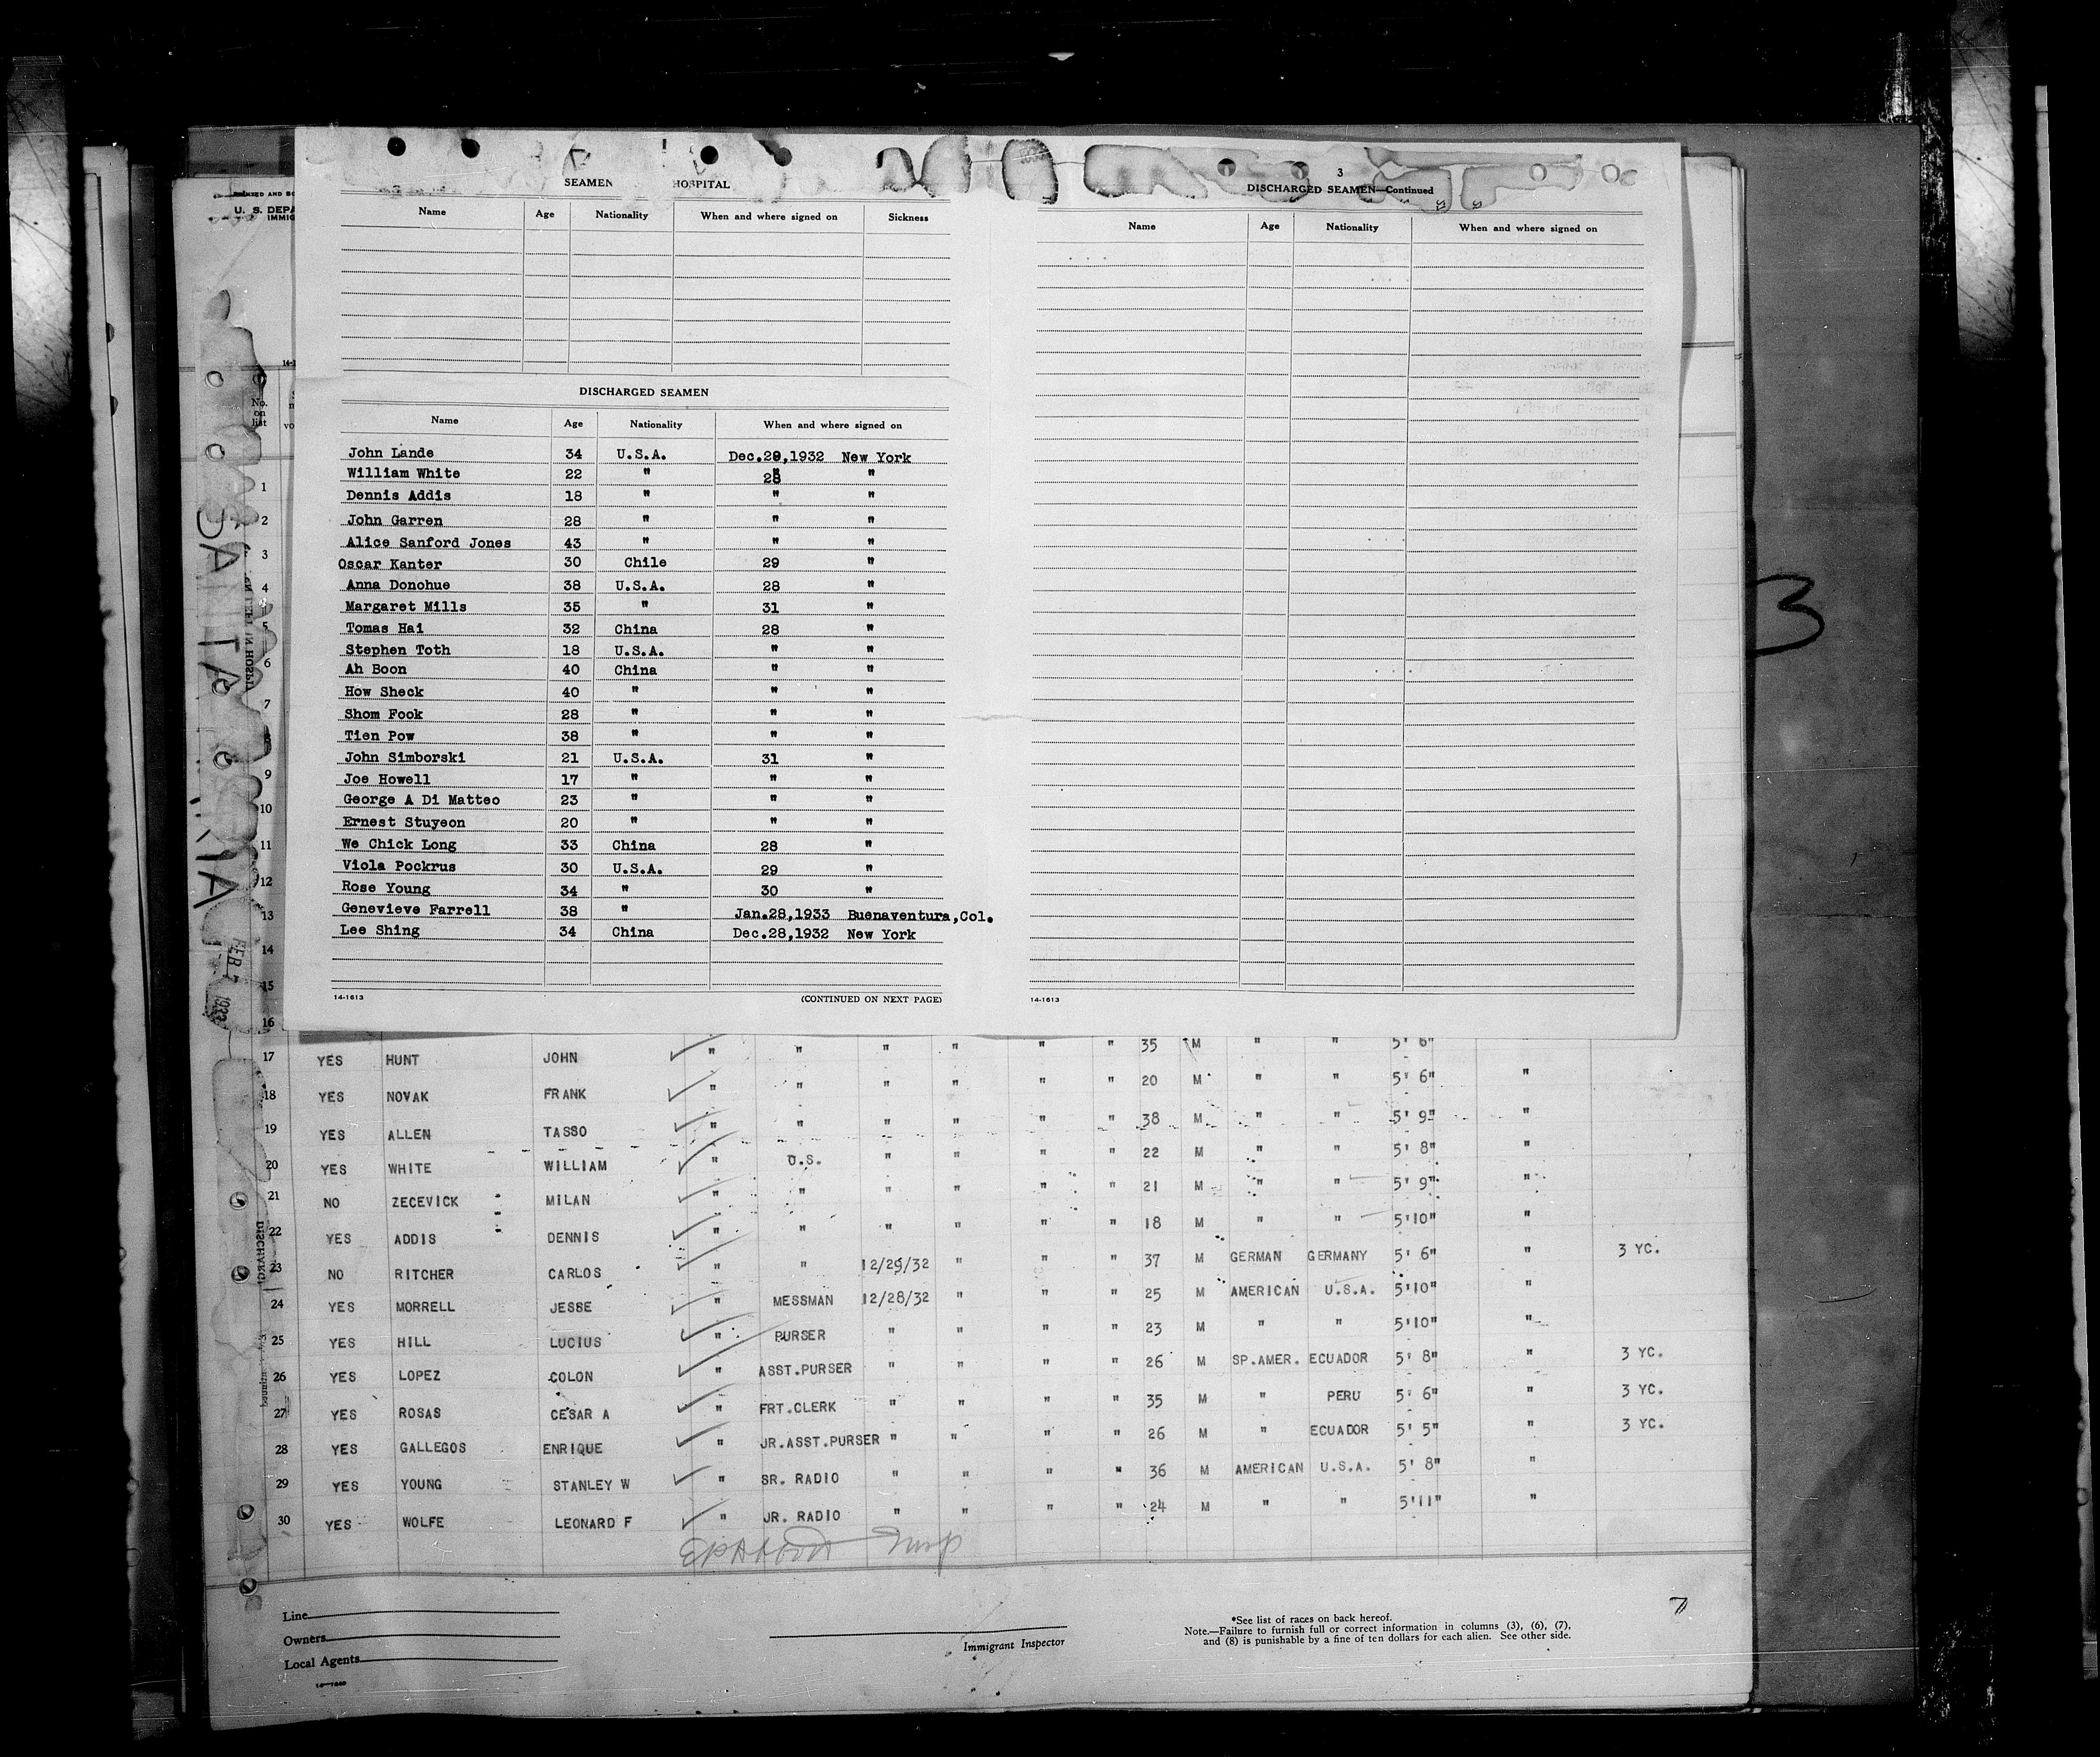 SEAMEN HOSPITAL
Name Age Nationality When and where signed on Sickness
DISCHARGED SEAMEN
Name Age Nationality When and where signed on
John Lande 34 U.S.A. Dec.28,1932 New York
William White 22 " 28 "
Dennis Addis 18 " " "
John Garren 28 " " "
Alice Sanford Jones 43 " " "
Oscar Kanter 30 Chile 29 "
Anna Donohue 38 U.S.A. 28 "
Margaret Mills 35 " 31 "
Tomas Hai 32 China 28 "
Stephen Toth 18 U.S.A. " "
Ah Boon 40 China " "
How Sheck 40 " " "
Shom Fook 28 " " "
Tien Pow 38 " " "
John Simborski 21 U.S.A. 31 "
Joe Howell 17 " " "
George A Di Matteo 23 " " "
Ernest Stuyeon 20 " " "
We Chick Long 33 China 28 "
Viola Pockrus 30 U.S.A. 29 "
Rose Young 34 " 30 "
Genevieve Farrell 38 " Jan.28,1933 Buenaventura,Col.
Lee Shing 34 China Dec.28,1932 New York
14-1613 (CONTINUED ON NEXT PAGE)
3
DISCHARGED SEAMEN—Continued
Name Age Nationality When and where signed on
14-1613
U. S. DEPA
IMMIG
No. on list
1
2
3
4
5
6
7
8
9
10
11
12
13
14
15
16
SANTA
FEB 7 1933
3
17 YES HUNT JOHN " " " " " " 35 M " " 5' 6"
18 YES NOVAK FRANK " " " " " " 20 M " " 5' 6" "
19 YES ALLEN TASSO " " " " " " 38 M " " 5' 9" "
20 YES WHITE WILLIAM " U.S. " " " " 22 M " " 5' 8" "
21 NO ZECEVICK MILAN " " " " " " 21 M " " 5' 9" "
22 YES ADDIS DENNIS " " " " " " 18 M " " 5'10" "
23 NO RITCHER CARLOS " " 12/29/32 " " " 37 M GERMAN GERMANY 5' 6" " 3 YC.
24 YES MORRELL JESSE " MESSMAN 12/28/32 " " " 25 M AMERICAN U.S.A. 5'10" "
25 YES HILL LUCIUS " PURSER " " " " 23 M " " 5'10" "
26 YES LOPEZ COLON " ASST.PURSER " " " " 26 M SP.AMER. ECUADOR 5' 8" " 3 YC.
27 YES ROSAS CESAR A " FRT.CLERK " " " " 35 M " PERU 5' 6" " 3 YC.
28 YES GALLEGOS ENRIQUE " JR.ASST.PURSER " " " " 26 M " ECUADOR 5' 5" " 3 YC.
29 YES YOUNG STANLEY W " SR. RADIO " " " " 36 M AMERICAN U.S.A. 5' 8" "
30 YES WOLFE LEONARD F " JR. RADIO " " " " 24 M " " 5'11" "
Line
Owners
Local Agents
Immigrant Inspector
*See list of races on back hereof.
Note.—Failure to furnish full or correct information in columns (3), (6), (7),
and (8) is punishable by a fine of ten dollars for each alien. See other side.
7